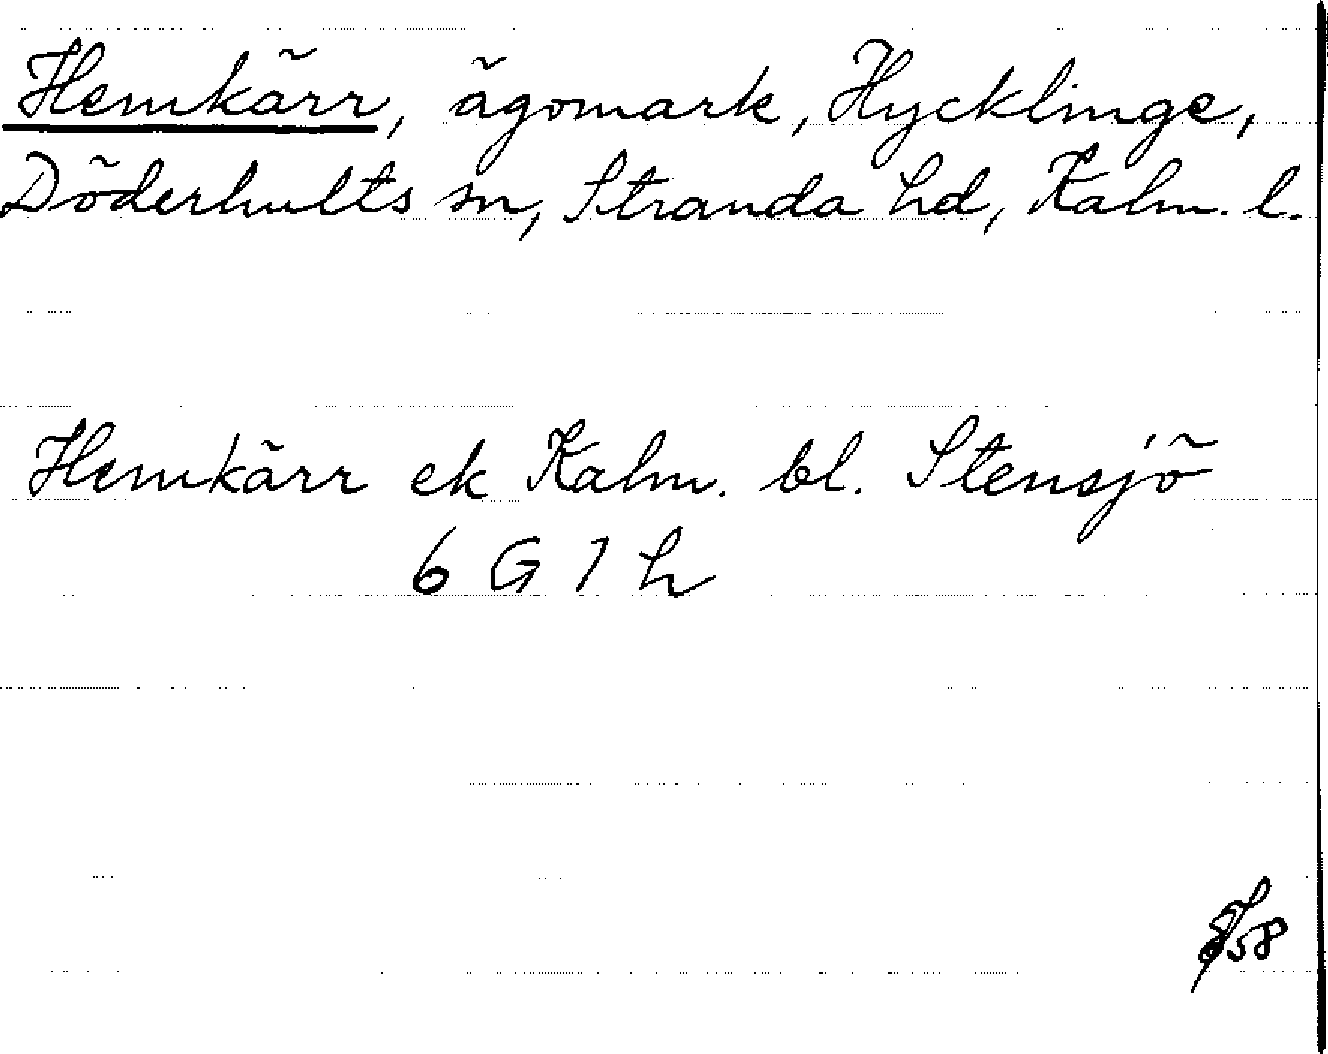 Hemkärr, ägomark, Hycklinge,
Döderhults sn, Stranda hd, Kalm. l.
Hemkärr ek Kalm. bl. Stensjö
6 G 1 h
58